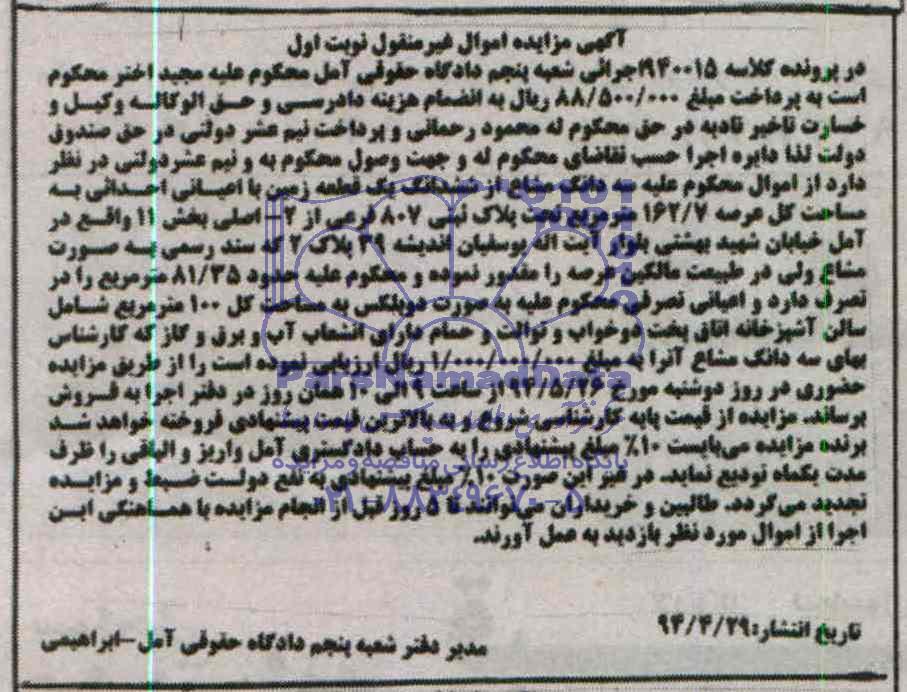 آگهی مزایده اموال غیرمنقول نوبت اول
در پرونده کلاسه ۹۴۰۰۱۵اجرائی شعبه پنجم دادگاه حقوقی آمل محکوم علیه مجید اختر محکوم
است به پرداخت مبلغ ۸۸/۵۰۰/۰۰۰ ریال به انضمام هزینه دادرسی و حق الوکاله وکیل و
خسارت تاخیر تادیه در حق محکوم له محمود رحمانی و پرداخت نیم عشر دولتی در حق صندوق
دولت لذا دایره اجرا حسب تقاضای محکوم له و جهت وصول محکوم به و نیم عشردولتی در نظر
دارد از اموال محکوم علیه سه دانگ مشاع از ششدانگ یک قطعه زمین با اعیانی احداثی به
مساحت کل عرصه ۱۶۲/۷ مترمربع تحت پلاک ثبتی ۸۰۷ فرعی از ۲- اصلی بخش ۱۱ واقع در
آمل خیابان شهید بهشتی بلوار آیت اله یوسفیان اندیشه ۳۹ پلاک ۲ که سند رسمی به صورت
مشاع ولی در طبیعت مالکین عرصه را مفروز نموده و محکوم علیه حدود ۸۱/۳۵ مترمربع را در
تصرف دارد و اعیانی تصرفی محکوم علیه به صورت دوبلکس به مساحت کل ۱۰۰ مترمربع شامل
سالن آشپزخانه اتاق پخت دوخواب و توالت و حمام دارای انشعاب آب و برق و گاز که کارشناس
بهای سه دانگ مشاع آنرا به مبلغ ۱/۰۰۰/۰۰۰/۰۰۰ ریال ارزیابی نموده است را از طریق مزایده
حضوری در روز دوشنبه مورخ ۹۴/۵/۲۶ از ساعت ۹ الی ۱۰ همان روز در دفتر اجرا به فروش
برساند. مزایده از قیمت پایه کارشناسی شروع و به بالاترین قیمت پیشنهادی فروخته خواهد شد
برنده مزایده می‌بایست ۱۰٪ مبلغ پیشنهادی را به حساب دادگستری آمل واریز و الباقی را ظرف
مدت یکماه تودیع نماید. در غیر این صورت ۱۰٪ مبلغ پیشنهادی به نفع دولت ضبط و مزایده
تجدید می‌گردد. طالبین و خریداران می‌توانند تا ۵ روز قبل از انجام مزایده با هماهنگی این
اجرا از اموال مورد نظر بازدید به عمل آورند.
تاریخ انتشار:۹۴/۴/۲۹
مدیر دفتر شعبه پنجم دادگاه حقوقی آمل-ابراهیمی
ParsNamadData
پایگاه اطلاع رسانی مناقصه و مزایده
۰۲۱-۸۸۳۴۹۶۷۰-۵